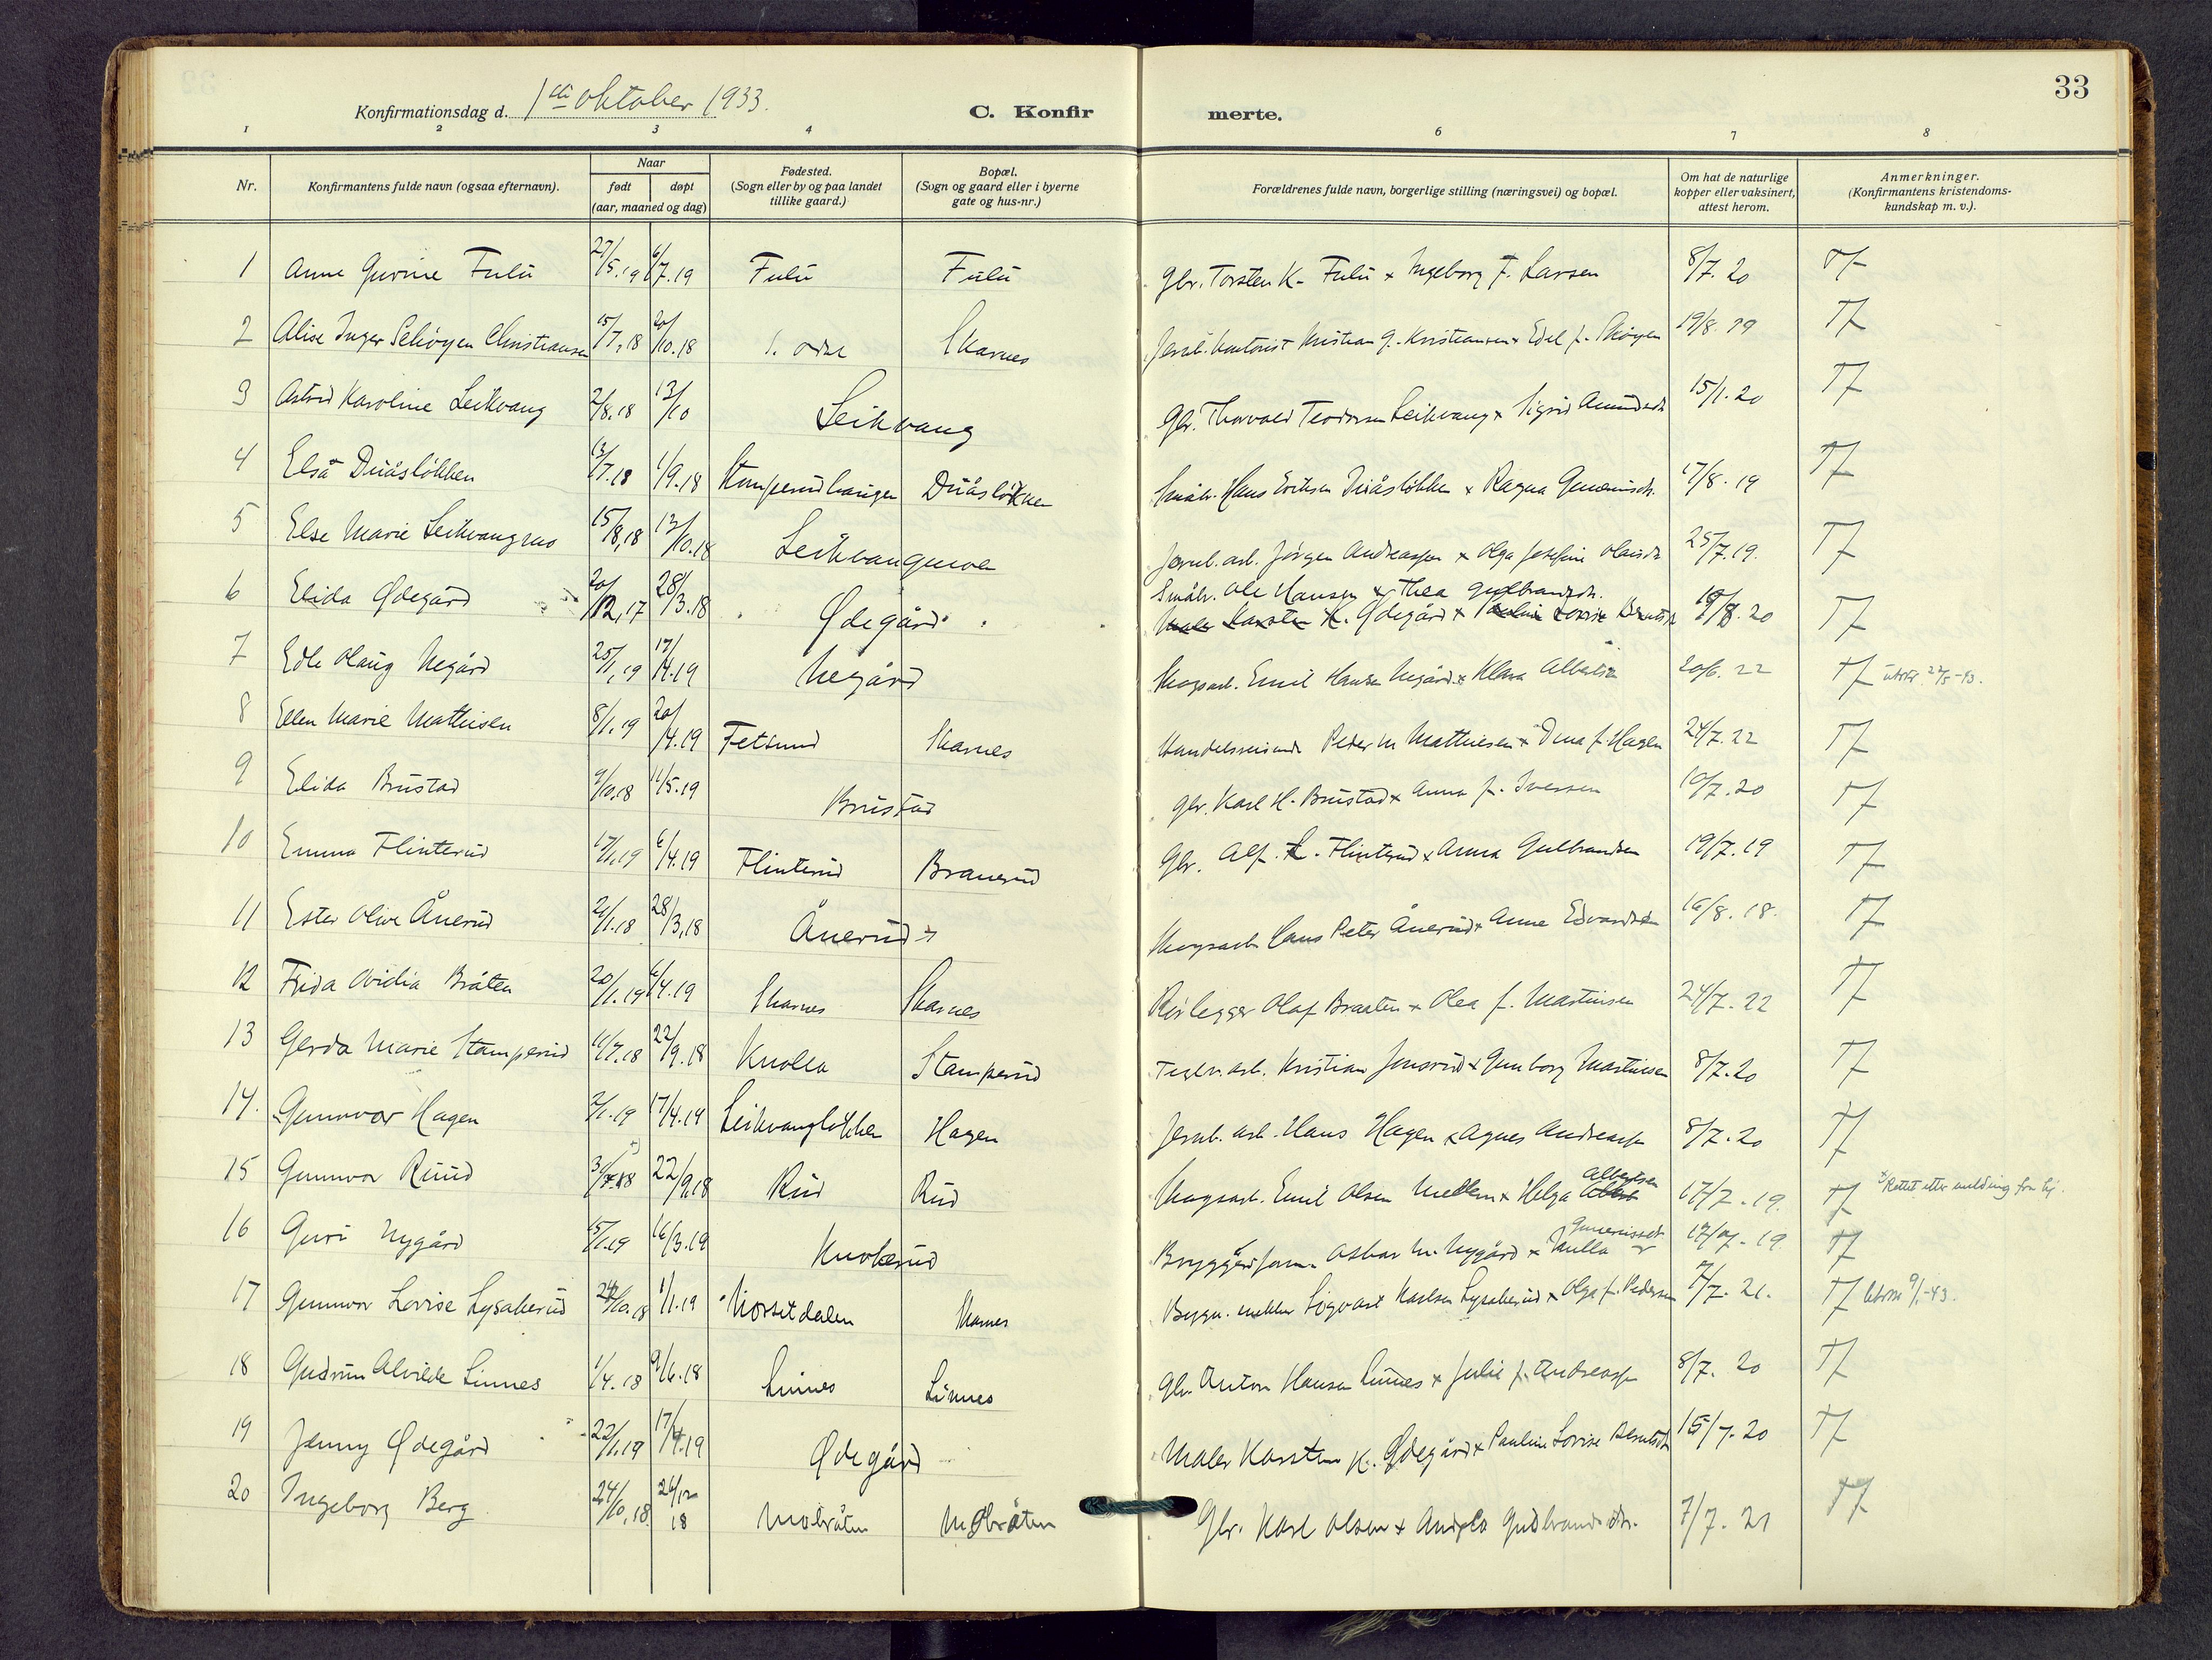 33
Konfirmationsdag d. 1ste oktober 1933.
C. Konfir merte.
1 2 3 4 6 7 8
Nr.
Konfirmantens fulde navn (ogsaa efternavn).
Naar
født døpt
(aar, maaned og dag)
Fødested.
(Sogn eller by og paa landet
tillike gaard.)
Bopæl.
(Sogn og gaard eller i byerne
gate og hus-nr.)
Forældrenes fulde navn, borgerlige stilling (næringsvei) og bopæl.
Om hat de naturlige
kopper eller vaksinert,
attest herom.
Anmerkninger.
(Konfirmantens kristendoms-
kundskap m. v.).
1 Anne Gurine Fulu 27/5.19 6/7.19 Fulu Fulu Gbr. Torsten K. Fulu x Ingeborg f. Larsen 8/7. 20
2 Alise Inger Schøyen Christiansen 15/7,18 20/10.18 S. Odal Skarnes Jernb. kontorist Kristian G. Kristiansen x Edel f. Skøyen 19/8. 19 T
3 Astrid Karoline Leikvang 2/8.18 13/10 Leikvang Gbr. Thorvald Teodorsen Leikvang x Sigrid Amundsdt. 15/1. 20
4 Elsa Duåsløkken 13/7.18 1/9.18 Stomperudhaugen Duåsløkken Småbr. Hans Eriksen Duåsløkken x Ragna 17/8. 19
5 Else Marie Leikvangmo 15/8,18 13/10.18 Leikvangmoen Jernb. arb. Jörgen Andreassen x Olga Josefine Olausdt. 25/7.19.
Småbr. Ole Hansen x Thea Gulbrandsdt.
6 Elida Ødegård 20/12,17 28/3.18 Ødegård Maler Karsten K. Ødegård x Pauline Lovise Berntsdt. 19/8. 20
7 Edle Olaug Negård 25/1,19 17/4.19 Negård Skogsarb. Emil Hansen Negård x Klara Albertsen 20/6. 22
8 Ellen Marie Mathiesen 8/1,19 20/4.19 Fetsund Skarnes Handelsreisende Peder M. Mathiesen x Dina f. Hagen 24/7.22
9 Elida Brustad 9/10.18 11/5.19 Brustad Gbr. Karl H. Brustad x Anna f. Iversen 10/7.20
10 Emma Flinterud 17/1.19 6/4.19 Flinterud Branerud Gbr. Alf. K. Flinterud x Anna Gulbrandsen 19/7.19
11 Ester Olive Ånerud 21/1.18 28/3,18 Ånerud Skogsarb. Hans Peter Ånerud x Anne Edvardsen 16/8. 18.
12 Frida Ovidia Bråten 20/1.19 6/4.19 Skarnes Skarnes Rørlegger Olaf Braaten x Olea f. Martinsen 24/7. 22
13 Gerda Marie Stamperud 11/7.18 22/9.18 Knolla Stamperud Teglv. arb. Kristian Jonsrud x Gunborg Martinsen 8/7.20
14. Gunnvor Hagen 2/1.19 17/4.19 Leikvangløkken Hagen Jernb. arb. Hans Hagen x Agnes Andreassen 8/7.20
15 Gunnvor Ruud 22/9,18 Rud Rud Skogsarb. Emil Olsen x Helga Albertsen 17/7. 19. x) Rettet etter melding fra
16 Guri Nygård 5/1.19 16/3.19 Knokerud Oskar M. Nygård x 19.
17 Gunnvor Lovise Lysakerud 24/10.18 1/1.19 Norsetdalen Skarnes Bygn. snekker Sigvart Karlsen Lysakerud x Olga f. Pedersen 7/7. 21. 9/1-43.
18 Gudrun Alvilde Linnes 1/4.18 9/6.18 Linnes Linnes Gbr. Anton Hansen Linnes x Julie f. Andreassen 8/7. 20
19 Jenny Ødegård 22/1.19 17/4.19 Ødegård Maler Karsten K. Ødegård x Pauline Lovise Berntsdt. 15/7. 20
20 Ingeborg Berg 24/10,18 26/12 18 Mobråten Mobråten Gbr. Karl Olsen x Gudbrandsdtr. 7/7. 21